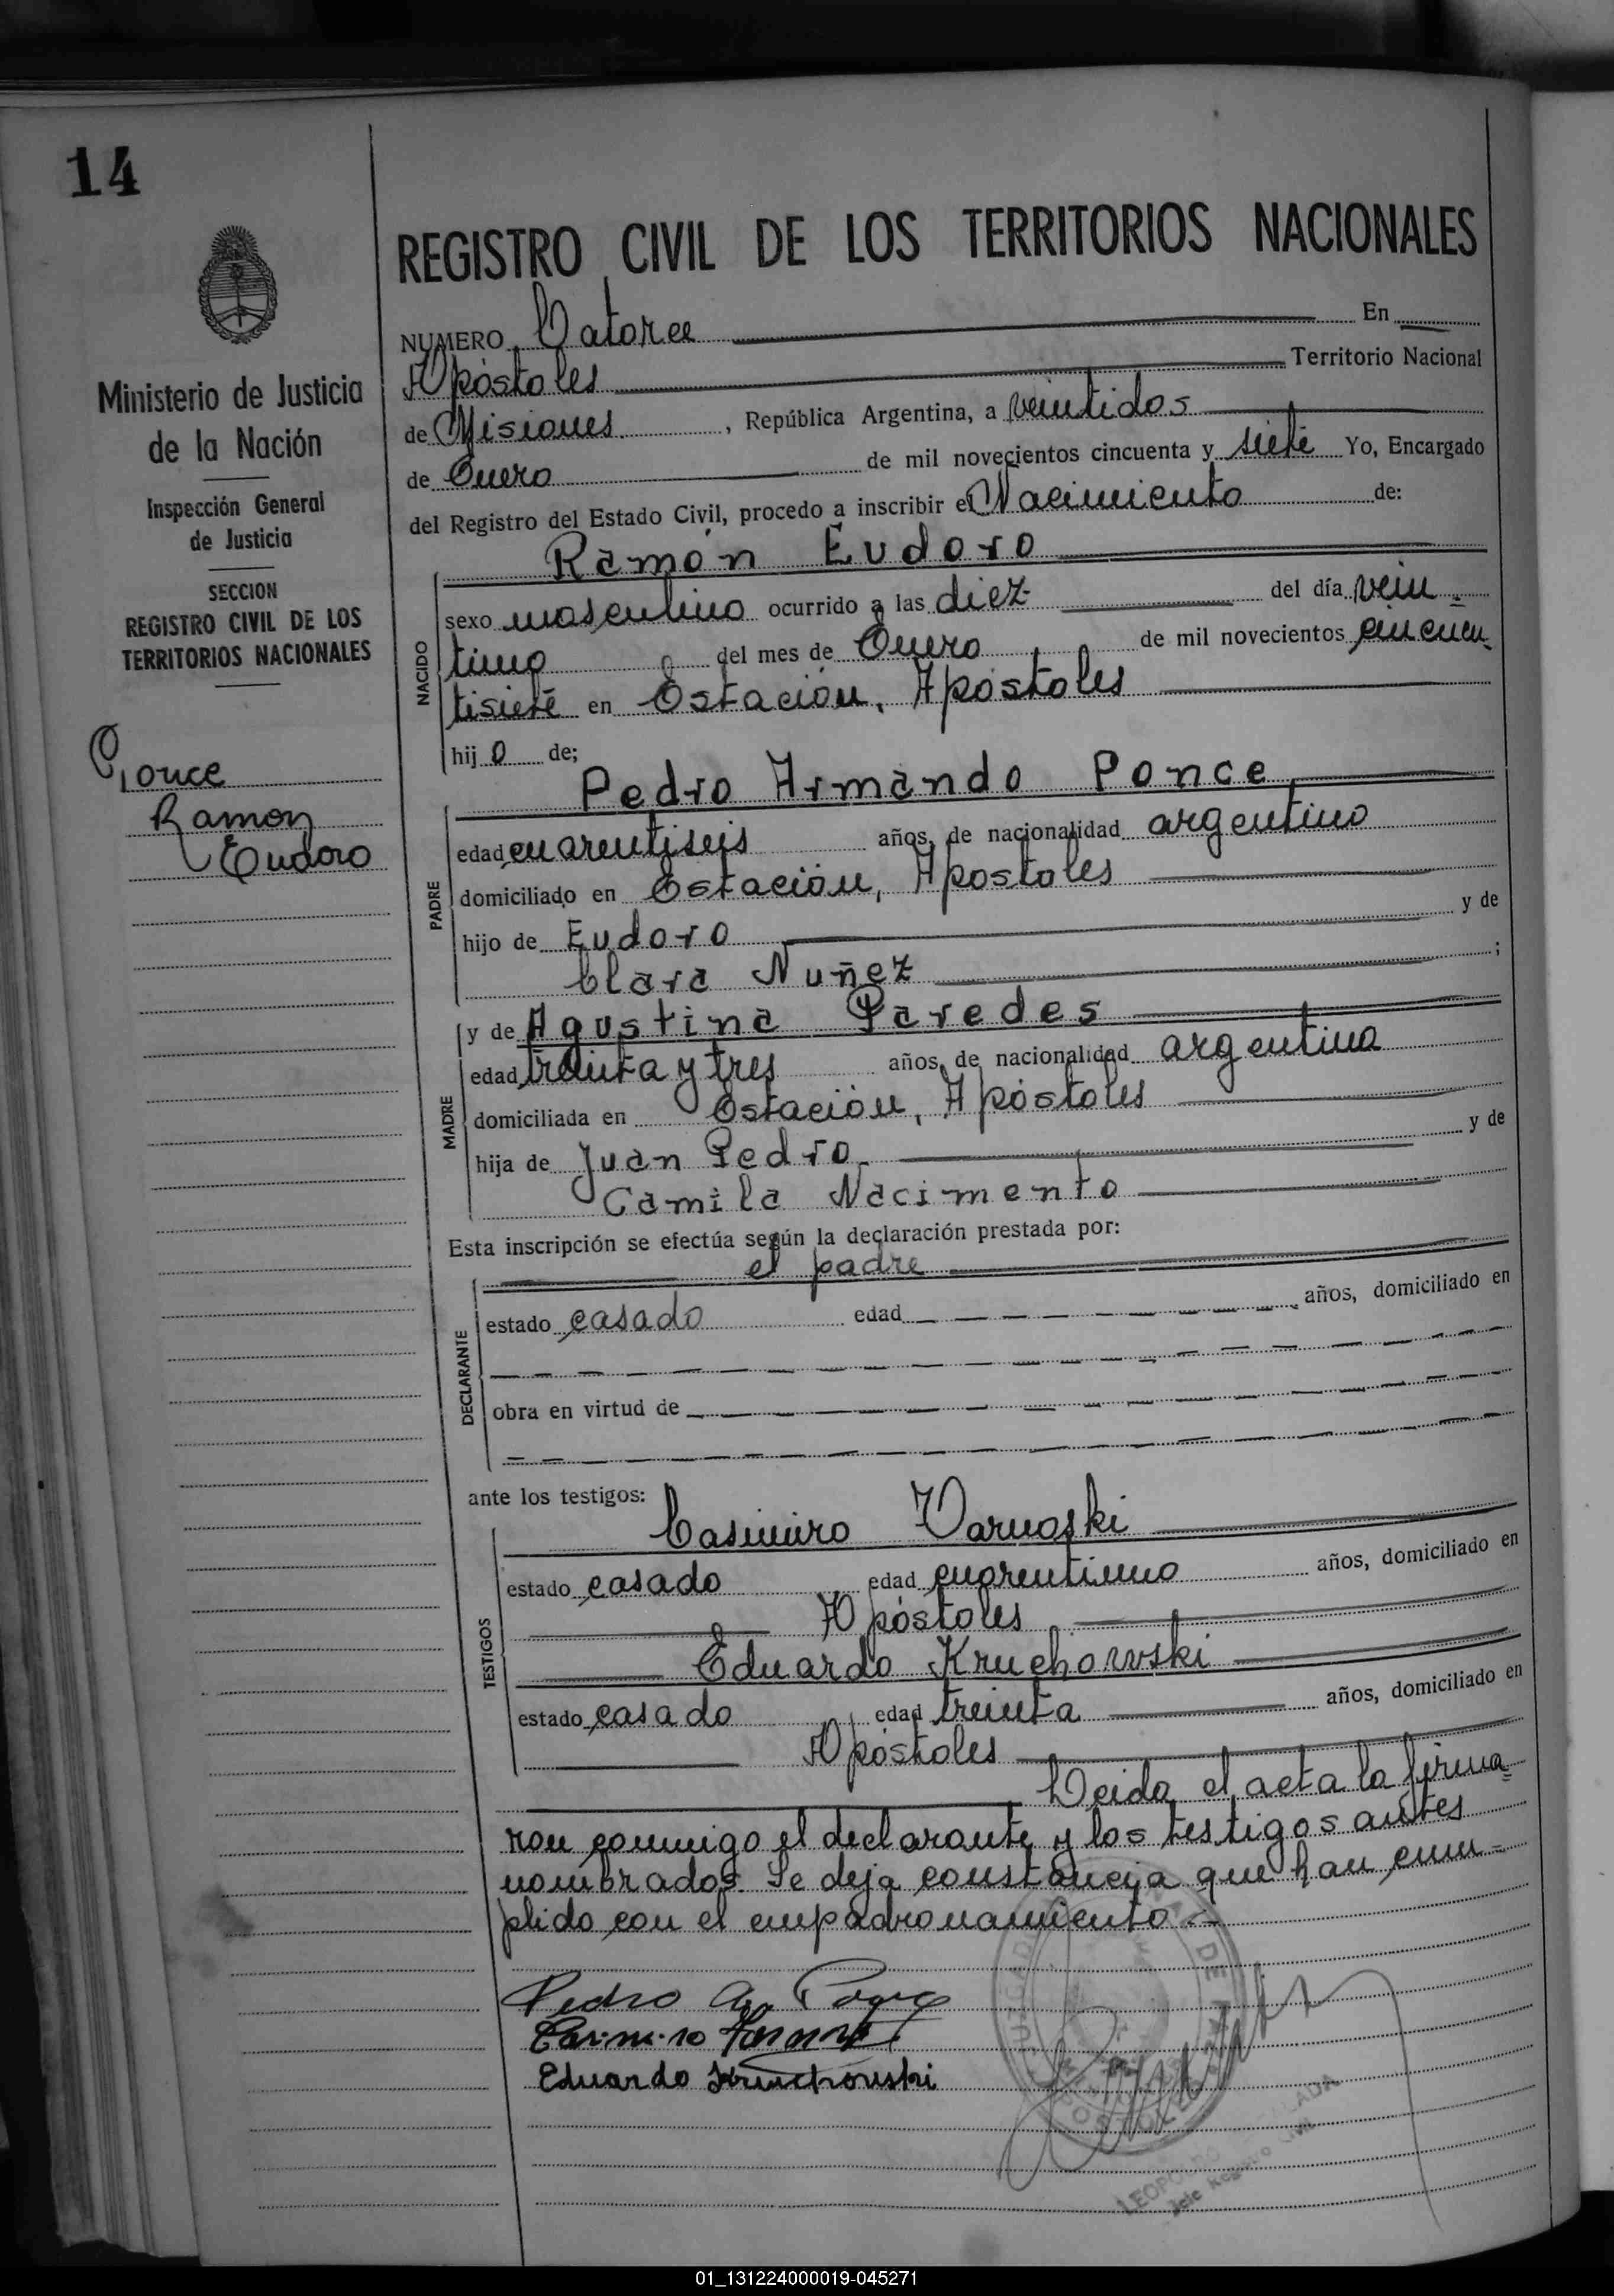 14
Ministerio de Justicia
de la Nación
Inspección General
de Justicia
SECCION
REGISTRO CIVIL DE LOS
TERRITORIOS NACIONALES
Ponce
Ramon
Eudoro
REGISTRO CIVIL DE LOS TERRITORIOS NACIONALES
NUMERO Catorce En
Apóstoles Territorio Nacional
de Misiones, República Argentina, a veintidos
de Enero de mil novecientos cincuenta y siete Yo, Encargado
del Registro del Estado Civil, procedo a inscribir el Nacimiento de:
Ramón Eudoro
NACIDO
sexo masculino ocurrido a las diez del día vein=
tiuno del mes de Enero de mil novecientos cincuen
tisiete en Estación, Apóstoles
hijo de;
Pedro Armando Ponce
PADRE
edad cuarentiseis años, de nacionalidad argentino
domiciliado en Estación, Apostoles
hijo de Eudoro y de
Clara Nuñez ;
y de Agustina Paredes
MADRE
edad treinta y tres años, de nacionalidad argentina
domiciliada en Estación, Apóstoles
hija de Juan Pedro y de
Camila Nacimento
Esta inscripción se efectúa según la declaración prestada por:
el padre
DECLARANTE
estado casado edad años, domiciliado en
obra en virtud de
ante los testigos:
Casimiro Varnoski
TESTIGOS
estado casado edad cuarentiuno años, domiciliado en
Apóstoles
Eduardo Kruchowski
estado casado edad treinta años, domiciliado en
Apóstoles
Leida el acta la firma=
ron conmigo el declarante y los testigos antes
nombrados. Se deja constancia que han cum=
plido con el empadronamiento.-
Pedro A. Ponce
Casimiro
Eduardo Kruchowski
Jefe Registro Civil
01_131224000019-045271